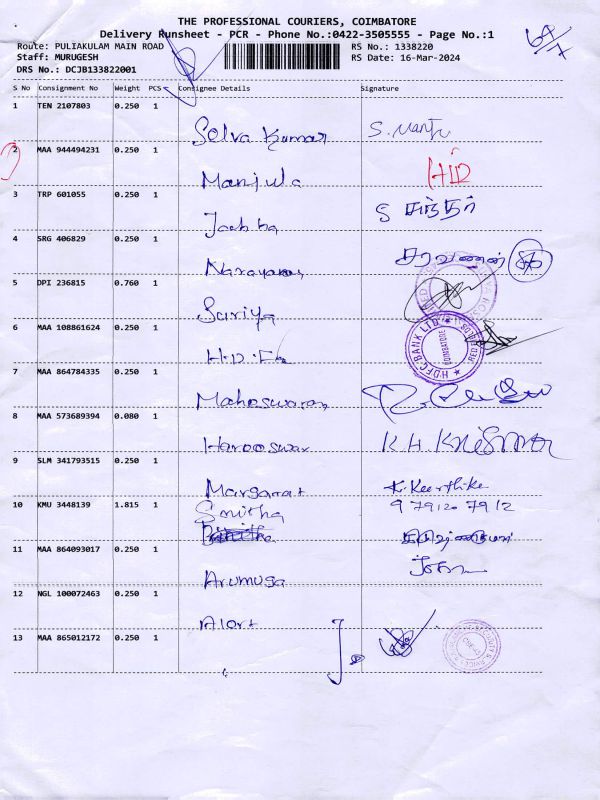 THE PROFESSIONAL COURIERS, COIMBATORE
Delivery Runsheet - PCR - Phone No.:0422-3505555 - Page No.:1
Route: PULIAKULAM MAIN ROAD RS No.: 1338220
Staff: MURUGESH RS Date: 16-Mar-2024
DRS No.: DCJB133822001
S No Consignment No Weight PCS Consignee Details Signature
1 TEN 2107803 0.250 1
Selva Kumar
2 MAA 944494231 0.250 1
Manjula
3 TRP 601055 0.250 1
S சுந்தர்
4 SRG 406829 0.250 1
Narayanan சரவணன்
5 DPI 236815 0.760 1
Suriya
6 MAA 108861624 0.250 1
HDFC BANK LTD COIMBATORE
7 MAA 864784335 0.250 1
Maheswaran
8 MAA 573689394 0.080 1
9 SLM 341793515 0.250 1
Margarat K. Keerthika
10 KMU 3448139 1.815 1
Smitha 9 79120 7912
11 MAA 864093017 0.250 1
Arumuga
12 NGL 100072463 0.250 1
Alert
13 MAA 865012172 0.250 1